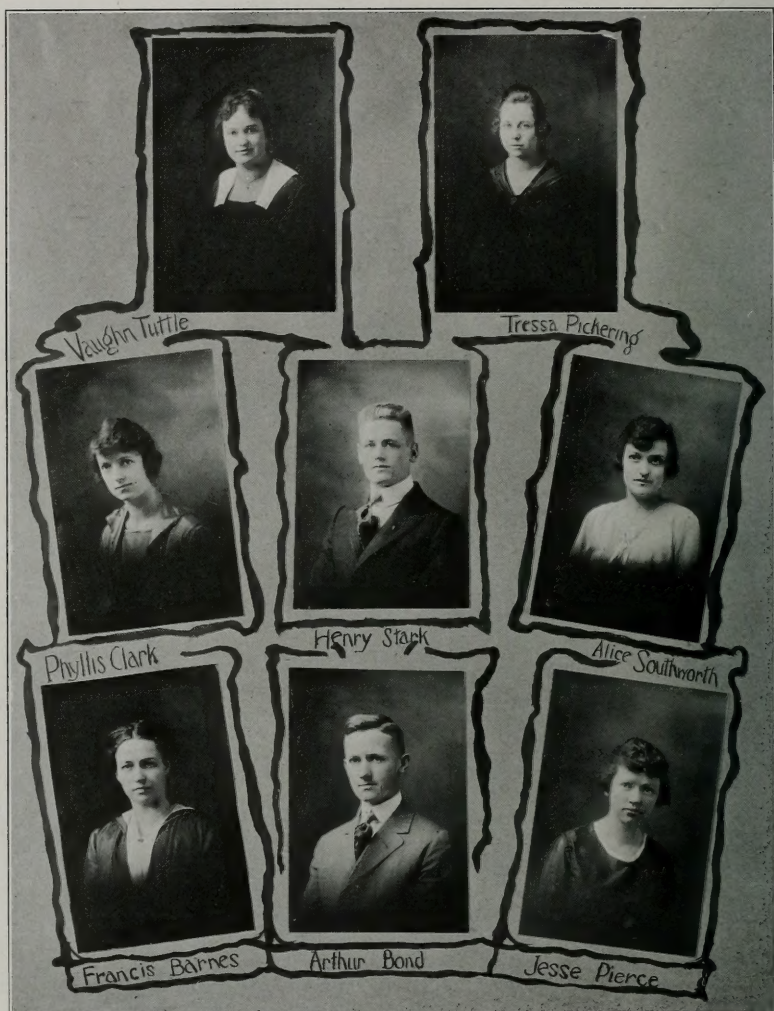 Vaughn Tuttle
Tressa Pickering
Phyllis Clark
Henry Stark
Alice Southworth
Francis Barnes
Arthur Bond
Jesse Pierce